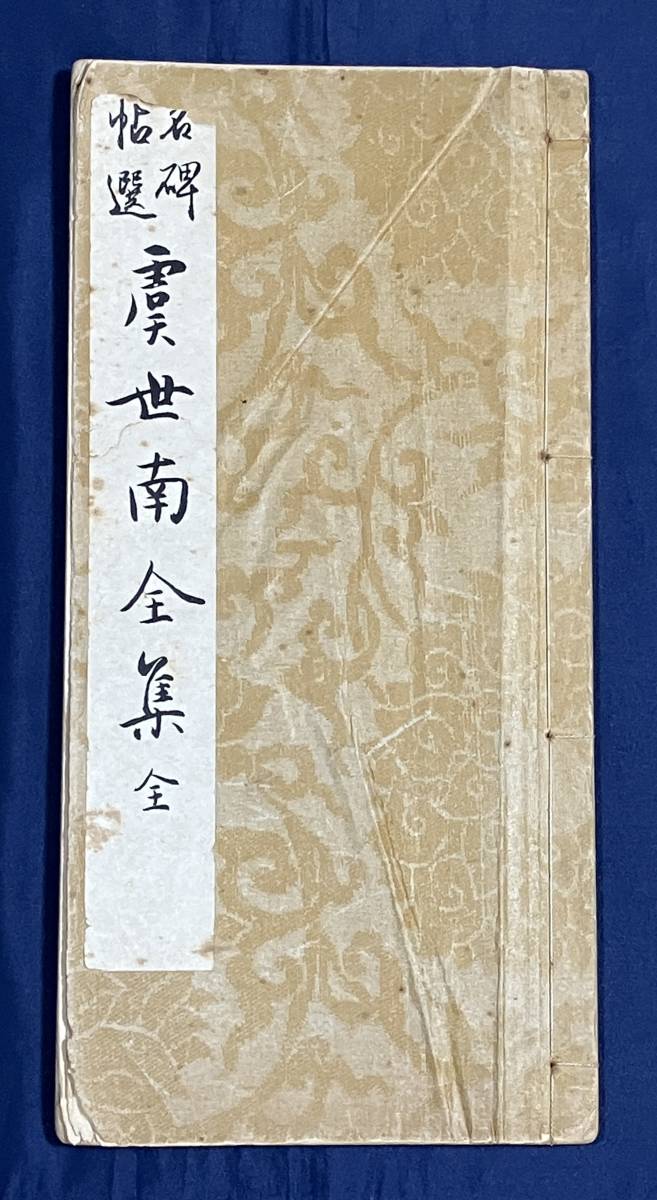 名碑
帖選
虞世南全集 全